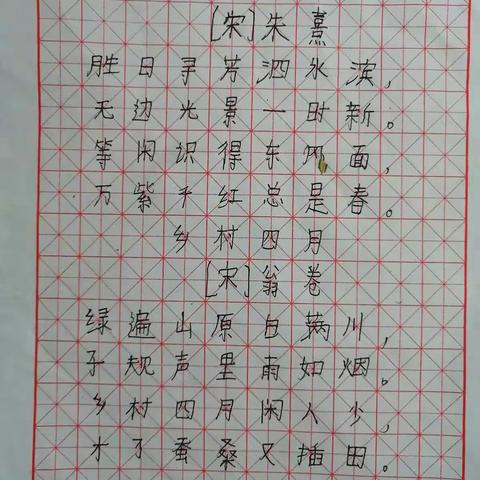 [宋]朱熹
胜日寻芳泗水滨，
无边光景一时新。
等闲识得东风面，
万紫千红总是春。
乡村四月
[宋]翁卷
绿遍山原白满川，
子规声里雨如烟。
乡村四月闲人少，
才了蚕桑又插田。